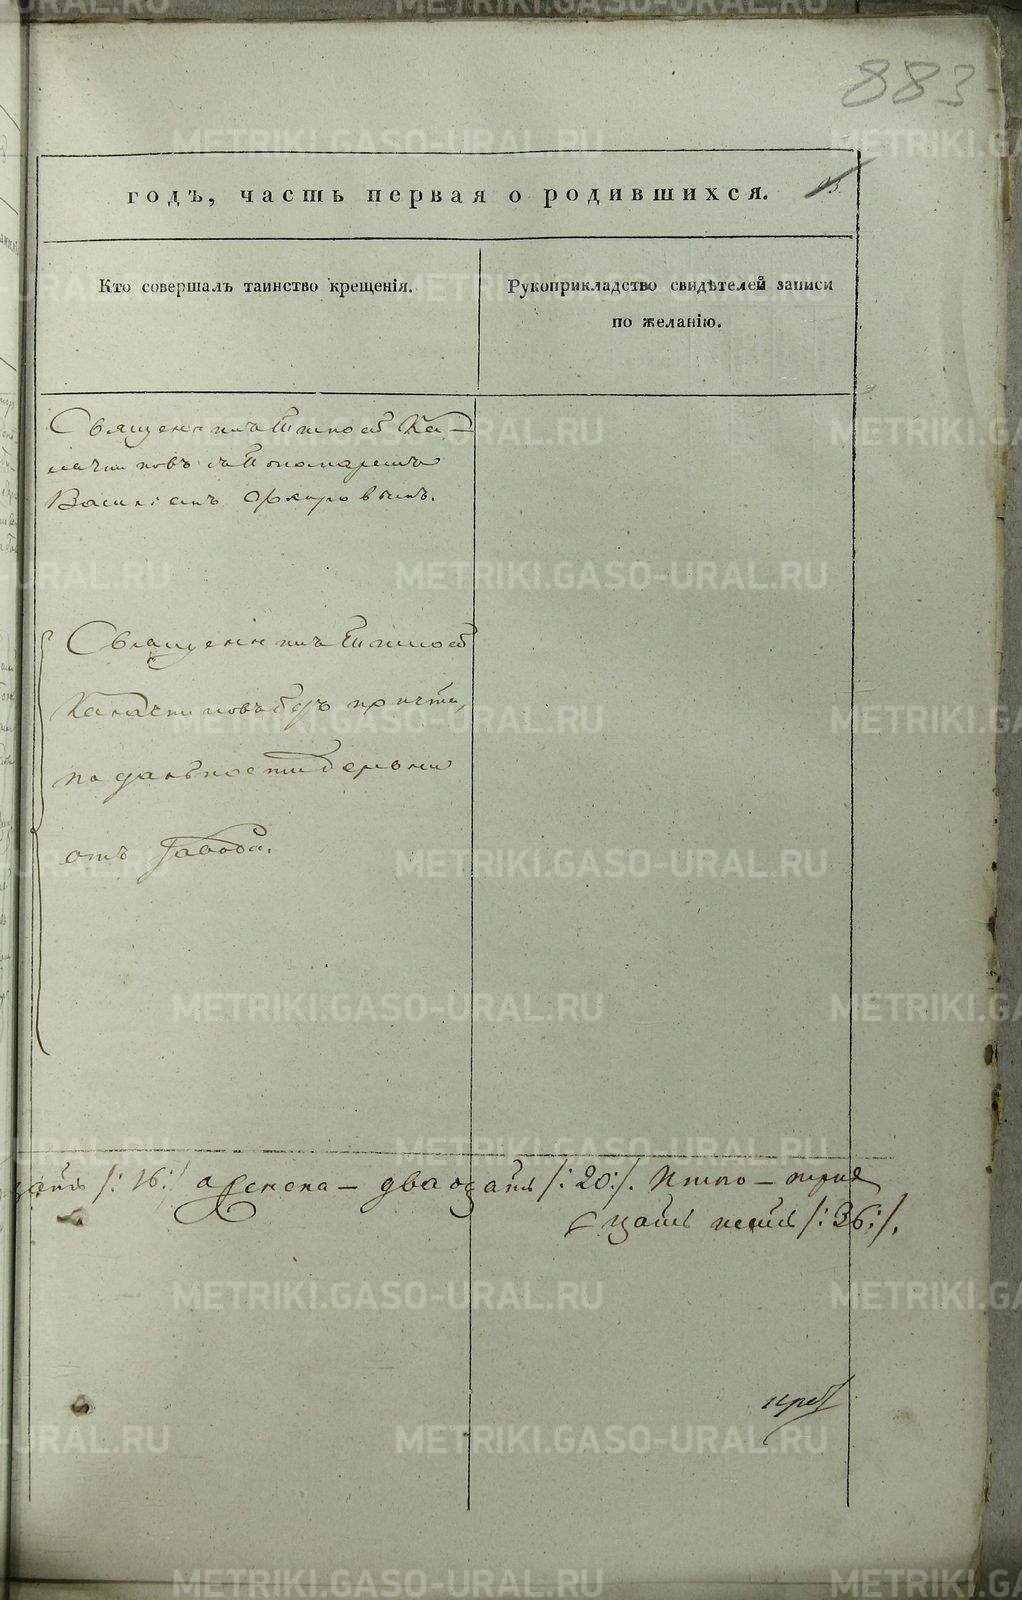 883
годъ, часть первая о родившихся.
Кто совершалъ таинство крещенія.
Рукоприкладство свидѣтелей записи
по желанію.
Священникъ Тимофей Ка-
лачниковъ съ Пономаремъ
Василіемъ
Священникъ Тимофей
Калачниковъ безъ причта,
по дальности деревни
отъ завода.
/:16:/ а женска – двадцать /:20:/. Итого – трид
цать шесть /:36:/.
METRIKI.GASO-URAL.RU